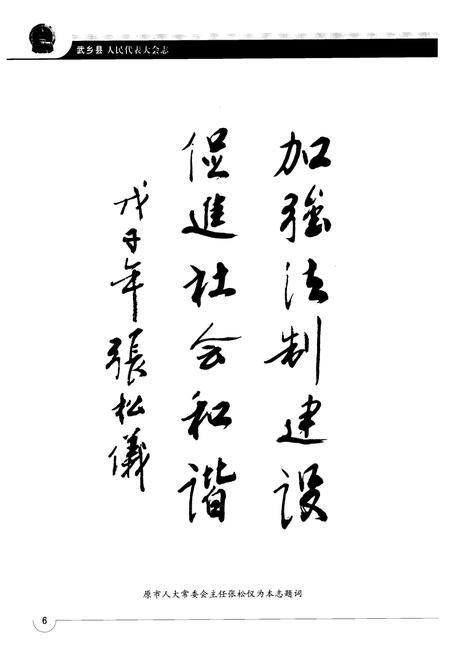 武乡县 人民代表大会志
加強法制建设
促進社会和谐
戊子年 張松儀
原市人大常委会主任张松仪为本志题词
6